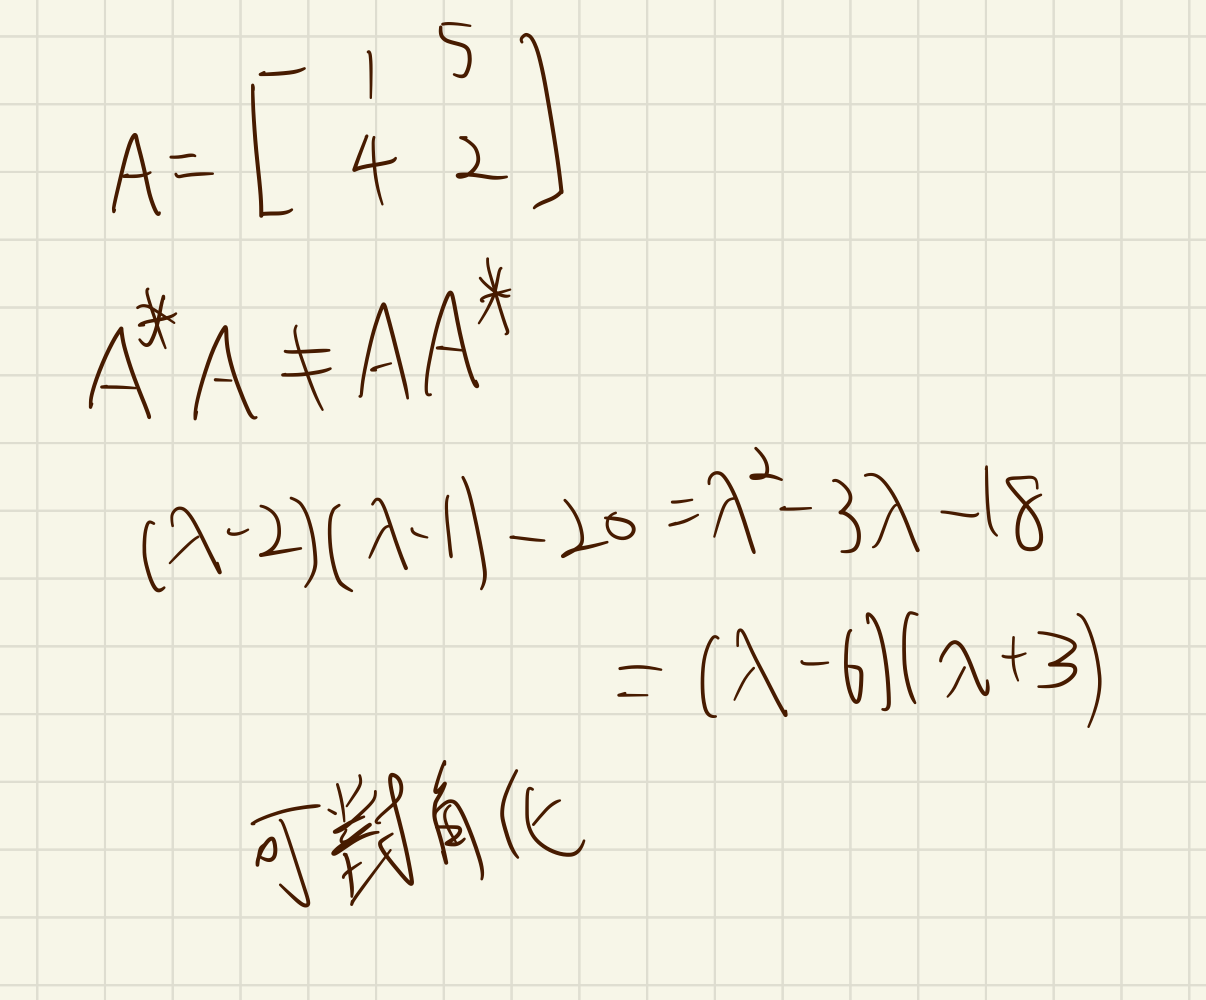 A = [ 1 5
4 2 ]
A* A ≠ A A*
(λ-2)(λ-1) - 20 = λ² - 3λ - 18
= (λ - 6)(λ + 3)
可對角化